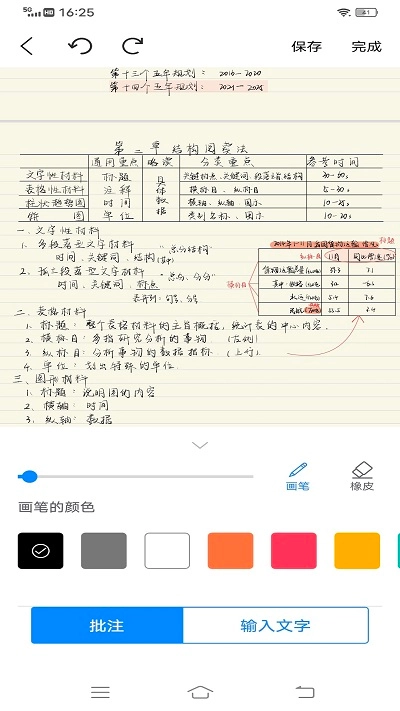 5G HD 16:25 41
保存 完成
第十三个五年规划： 2016-2020
第十四个五年规划： 2021-2025
第二章 结构阅读法
通用重点 略读 分类重点 参考时间
文字性材料 标题 具体数据 关键地点、关键词、段落主旨结构 30-60s
表格性材料 注释 横标目、纵标目 5-30s
柱状趋势图 时间 横轴、纵轴、图示 10-25s
饼图 单位 类别名称、图示 10-20s
一、文字性材料
1. 多段落型文字材料 "总分结构"
时间、关键词、结构
时间、关键词、标点
二、表格材料
1. 标题：整个表格材料的主旨概括，统计表的中心内容.
2. 横标目：多指研究分析的事物 (左侧)
3. 纵标目：分析事物的数据指标 (上方)
4. 单位：划出特殊的单位
三、图形材料
1. 标题：说明图的内容
2. 横轴：时间
3. 纵轴：数据
标题
纵标目
横标目
画笔 橡皮
画笔的颜色
批注 输入文字